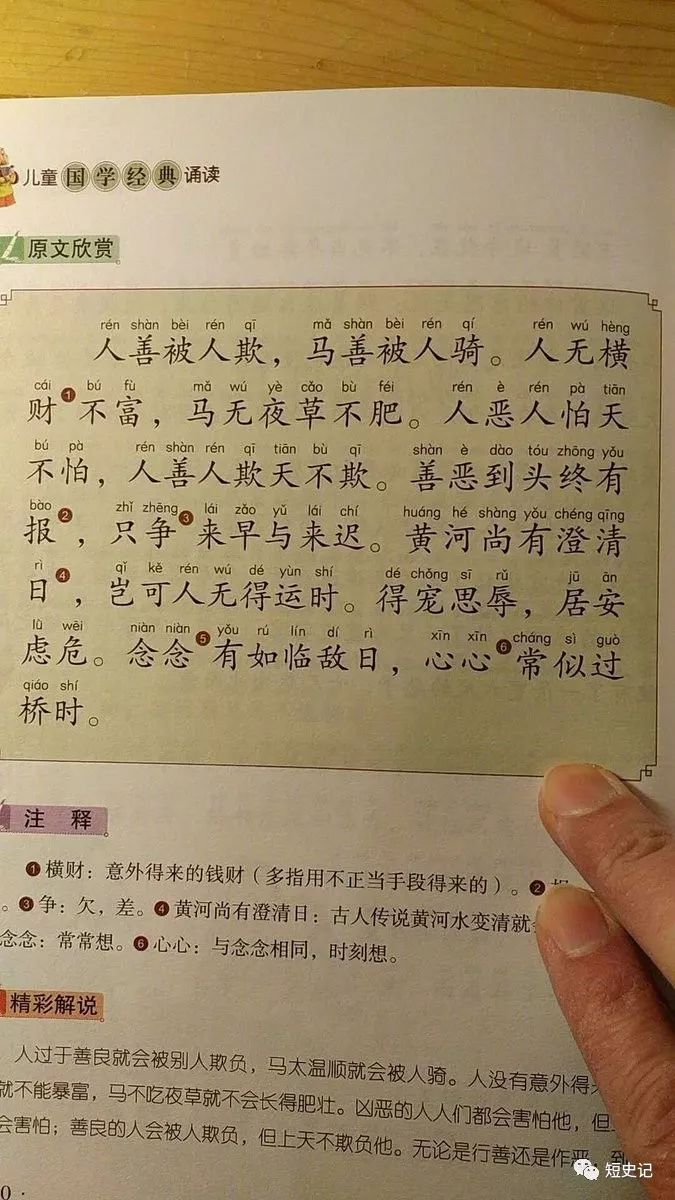 儿童国学经典诵读
原文欣赏
rén shàn bèi rén qī mǎ shàn bèi rén qí rén wú hèng
人善被人欺，马善被人骑。人无横
cái bú fù mǎ wú yè cǎo bù féi rén è rén pà tiān
财❶不富，马无夜草不肥。人恶人怕天
bú pà rén shàn rén qī tiān bù qī shàn è dào tóu zhōng yǒu
不怕，人善人欺天不欺。善恶到头终有
bào zhǐ zhēng lái zǎo yǔ lái chí huáng hé shàng yǒu chéng qīng
报❷，只争❸来早与来迟。黄河尚有澄清
rì qǐ kě rén wú dé yùn shí dé chǒng sī rǔ jū ān
日❹，岂可人无得运时。得宠思辱，居安
lǜ wēi niàn niàn yǒu rú lín dí rì xīn xīn cháng sì guò
虑危。念念❺有如临敌日，心心❻常似过
qiáo shí
桥时。
注 释
❶横财：意外得来的钱财（多指用不正当手段得来的）。❷
。❸争：欠，差。❹黄河尚有澄清日：古人传说黄河水变清就
念念：常常想。❻心心：与念念相同，时刻想。
精彩解说
人过于善良就会被别人欺负，马太温顺就会被人骑。人没有意外得
就不能暴富，马不吃夜草就不会长得肥壮。凶恶的人人们都会害怕他，但
会害怕；善良的人会被人欺负，但上天不欺负他。无论是行善还是作恶，到
0·
短史记